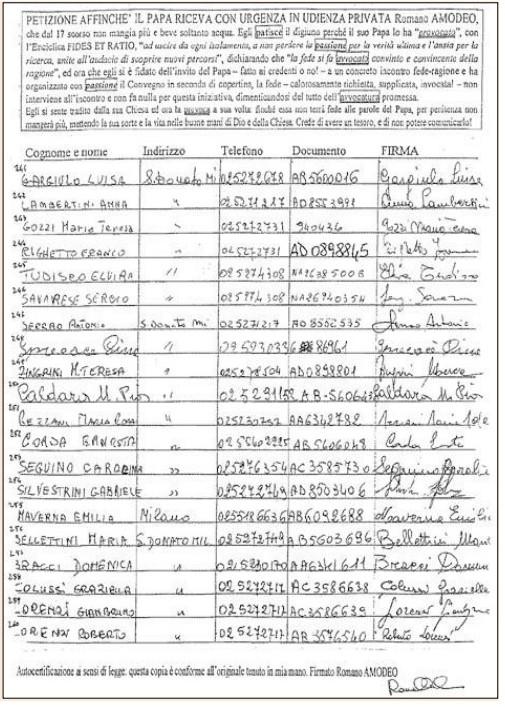 PETIZIONE AFFINCHE' IL PAPA RICEVA CON URGENZA IN UDIENZA PRIVATA Romano AMODEO,
che dal 17 scorso non mangia più e beve soltanto acqua. Egli patisce il digiuno perché il suo Papa lo ha "provocato", con
l'Enciclica FIDES ET RATIO, "ad uscire da ogni isolamento, a non perdere la passione per la verità ultima e l'ansia per la
ricerca, unite all'audacia di scoprire nuovi percorsi", dichiarando che "la fede si fa avvocata convinta e convincente della
ragione", ed ora che egli si è fidato dell'invito del Papa – fatto ai credenti o no! – a un concreto incontro fede-ragione e ha
organizzato con passione il Convegno in seconda di copertina, la fede – calorosamente richiesta, supplicata, invocata! – non
interviene all'incontro e non fa nulla per questa iniziativa, dimenticandosi del tutto dell'avvocatura promessa.
Egli si sente tradito dalla sua Chiesa ed ora la a sua volta: finché essa non terrà fede alle parole del Papa, per penitenza non
mangerà più, mettendo la sua sorte e la vita nelle buone mani di Dio e della Chiesa. Crede di avere un tesoro, e di non potere comunicarlo!
Cognome e nome Indirizzo Telefono Documento FIRMA
241 GARGIULO LUISA S. Donato Mi 025272678 AB5600016 Gargiulo Luisa
242 LAMBERTINI ANNA " 025271217 AD8553991 Anna Lambertini
243 GOZZI Maria Teresa 025272731 940436 Gozzi Maria Teresa
244 RIGHETTO FRANCO " 025272731 AD0898845 Righetto
245 TUDISCO ELVIRA " 025274308 NA26385006 Elvira Tudisco
246 SAVARESE SERGIO " 025274308 NA26940354 Serg. Savarese
SERRAO Antonio S. Donato Mi 025271217 AD8552535 Antonio
248
249 ZINGRINI M. TERESA " 025278504 AD0898801
250 Caldaro M. Pia " Caldaro M. Pia
251 MARIA ROSA " 025230752 AA6342782
252 CORDA " AB5606048 Corda
253 SEGUINO CAROLINA " 025276354 AC3585730 Seguino
254 SILVESTRINI GABRIELE " 025272749 AD8503406
255 MAVERNA EMILIA Milano 0255186636 AB6092688 Maverna Emilia
256 BELLETTINI MARIA S. DONATO MIL 025272749 AB5603696 Bellettini Maria
BRACCI DOMENICA " 025230170 AA6341611 Bracci
258 COLUSSI GRAZIELLA " 025272717 AC3586638 Colussi Graziella
259 LORENZI GIAMBRUNO " 025272717 AC3586639 Lorenzi
260 LORENZI ROBERTO " 025272717 AB3576540 Roberto Lorenzi
Autocertificazione ai sensi di legge: questa copia è conforme all'originale tenuto in mia mano. Firmato Romano AMODEO